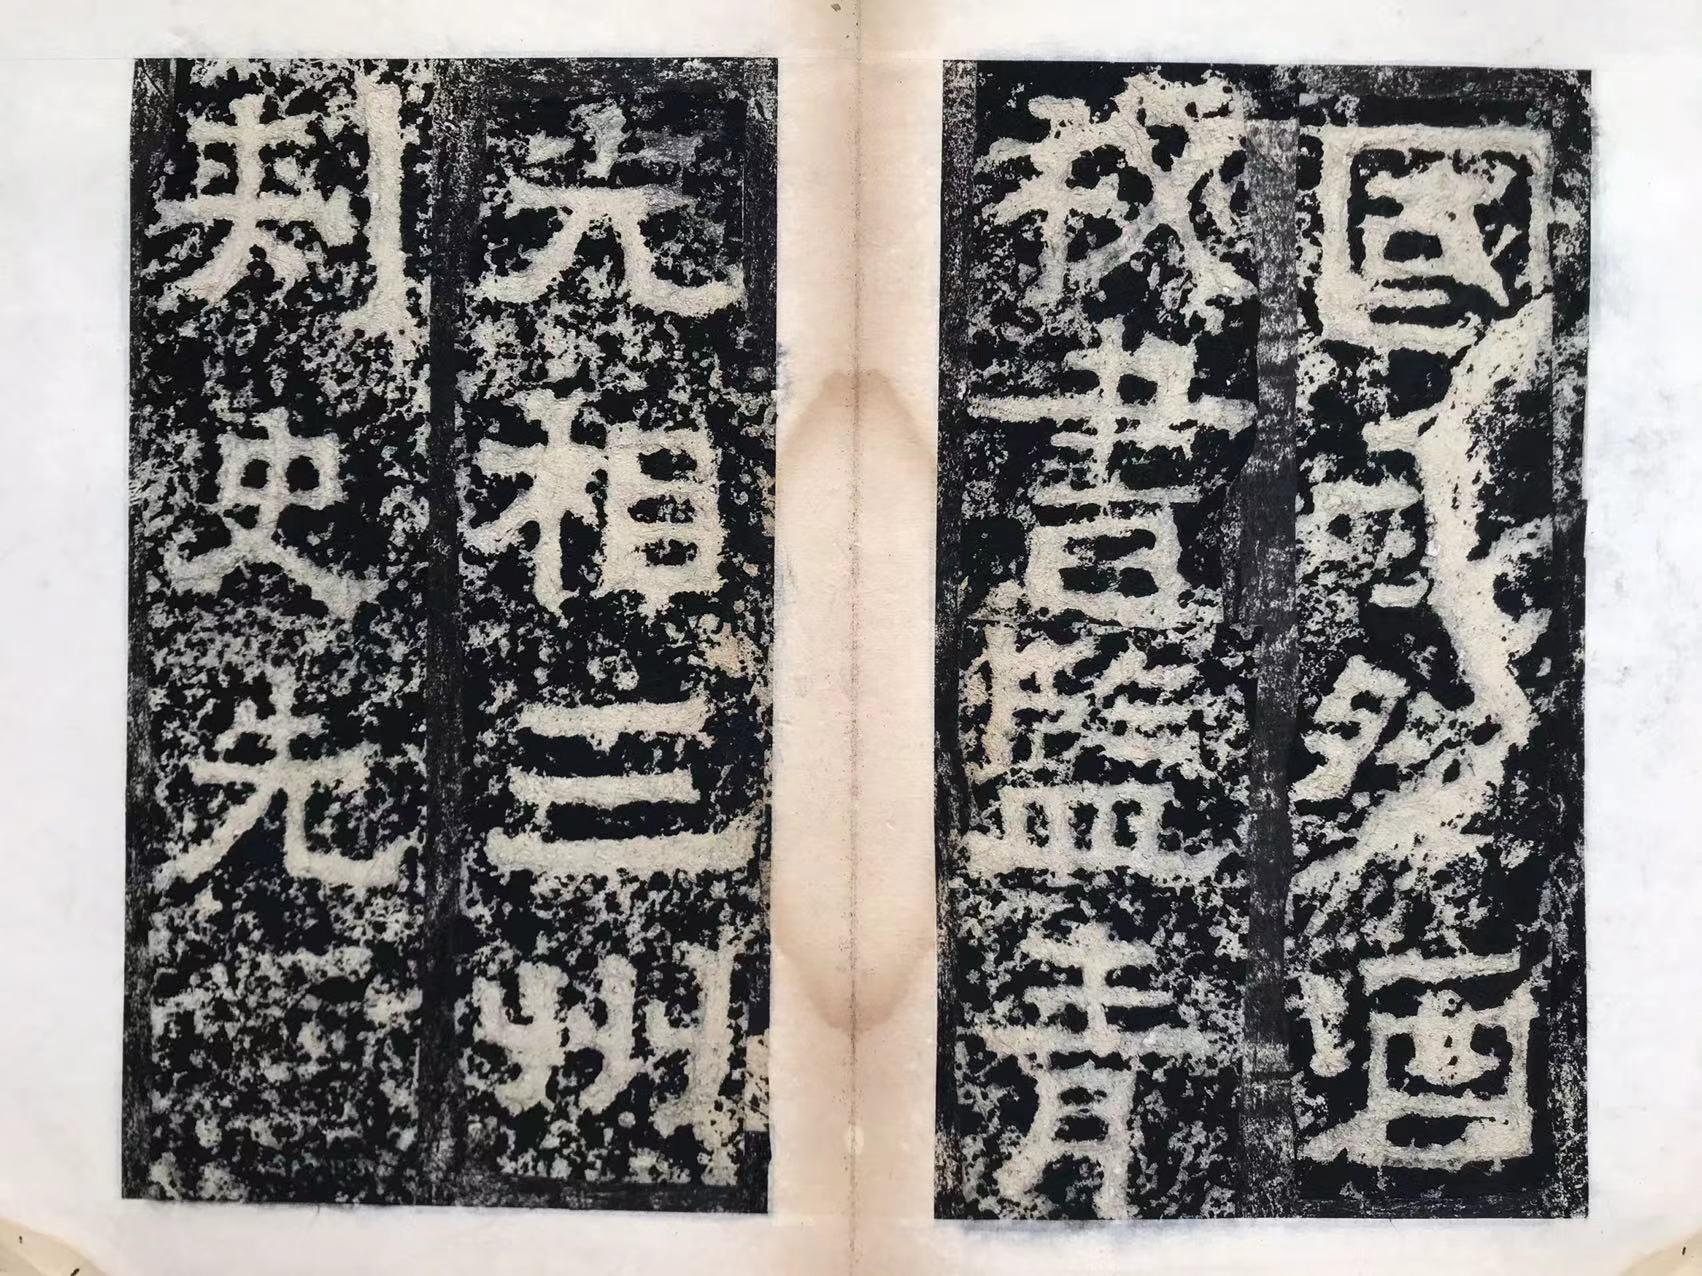 國子祭酒
秘書監青
光相三州
刺史先